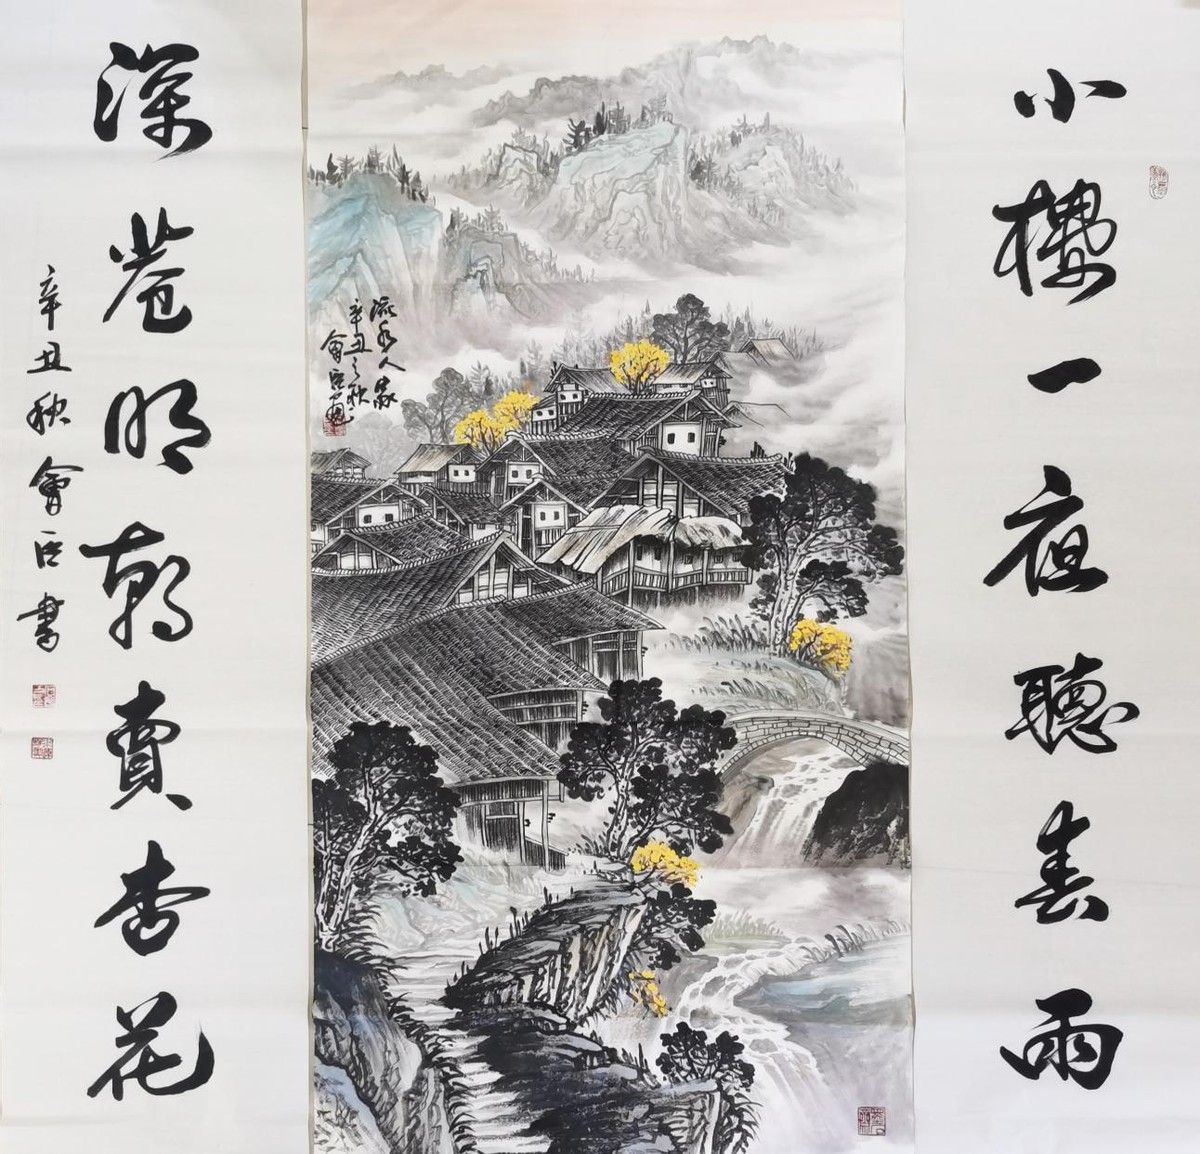 小樓一夜聽春雨
流水人家
辛丑之秋
深巷明朝賣杏花
辛丑秋會臣書